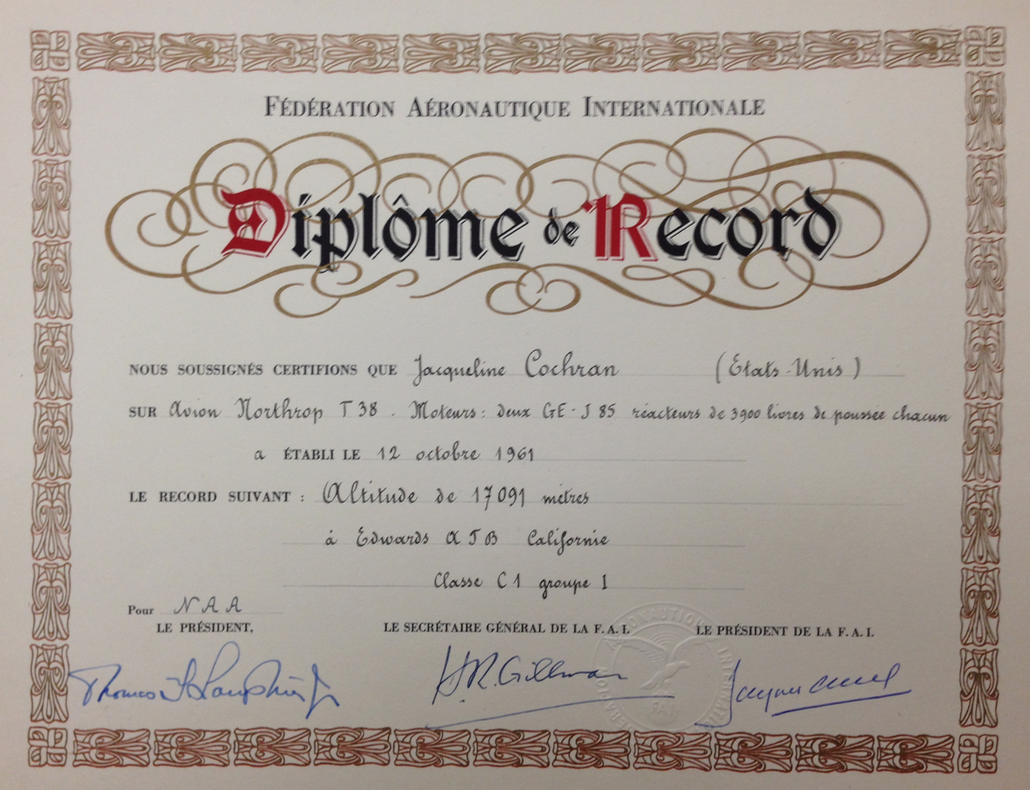 FÉDÉRATION AÉRONAUTIQUE INTERNATIONALE
Diplôme de Record
NOUS SOUSSIGNÉS CERTIFIONS QUE Jacqueline Cochran (États-Unis)
SUR Avion Northrop T 38 . Moteurs : deux GE - J 85 réacteurs de 3900 livres de poussée chacun
a ÉTABLI LE 12 octobre 1961
LE RECORD SUIVANT : Altitude de 17 091 mètres
à Edwards AFB Californie
Classe C 1 groupe I
Pour NAA
LE PRÉSIDENT, LE SECRÉTAIRE GÉNÉRAL DE LA F. A. I. LE PRÉSIDENT DE LA F. A. I.
Thomas H.R. Gillman